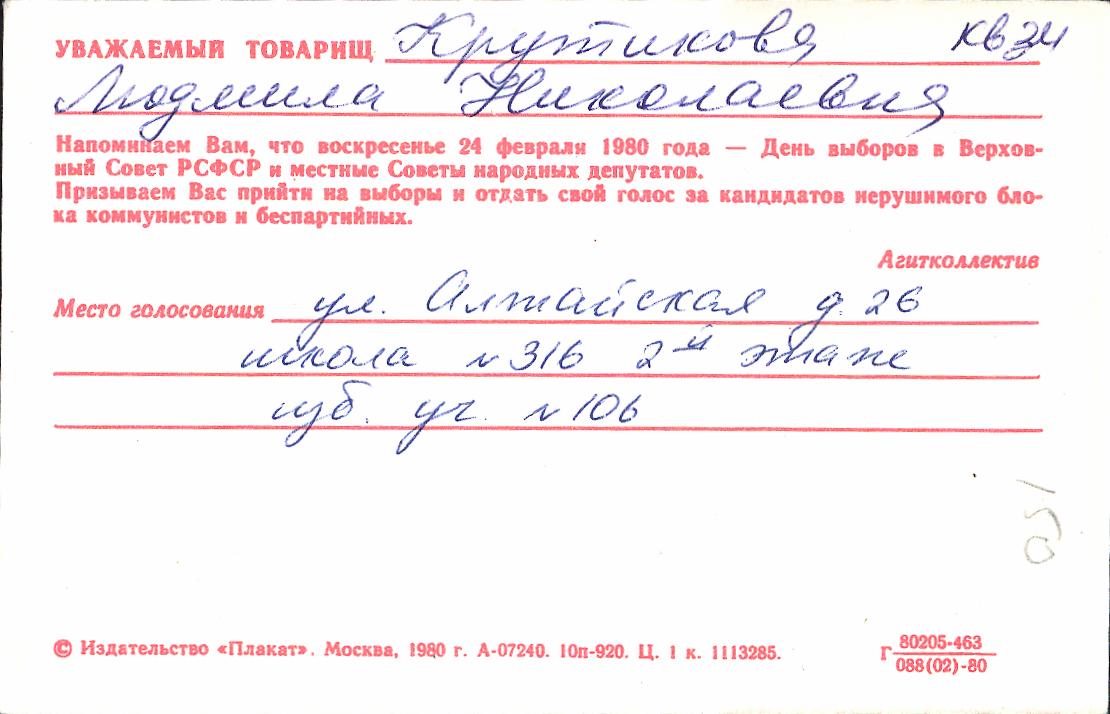 УВАЖАЕМЫЙ ТОВАРИЩ Крутикова кв 34
Людмила Николаевна
Напоминаем Вам, что воскресенье 24 февраля 1980 года — День выборов в Верхов-
ный Совет РСФСР и местные Советы народных депутатов.
Призываем Вас прийти на выборы и отдать свой голос за кандидатов нерушимого бло-
ка коммунистов и беспартийных.
Агитколлектив
Место голосования ул. Алтайская д. 26
школа №316 2й этаж
изб. уч. №106
© Издательство «Плакат». Москва, 1980 г. А-07240. 10п-920. Ц. 1 к. 1113285.
Г 80205-463
088(02)-80